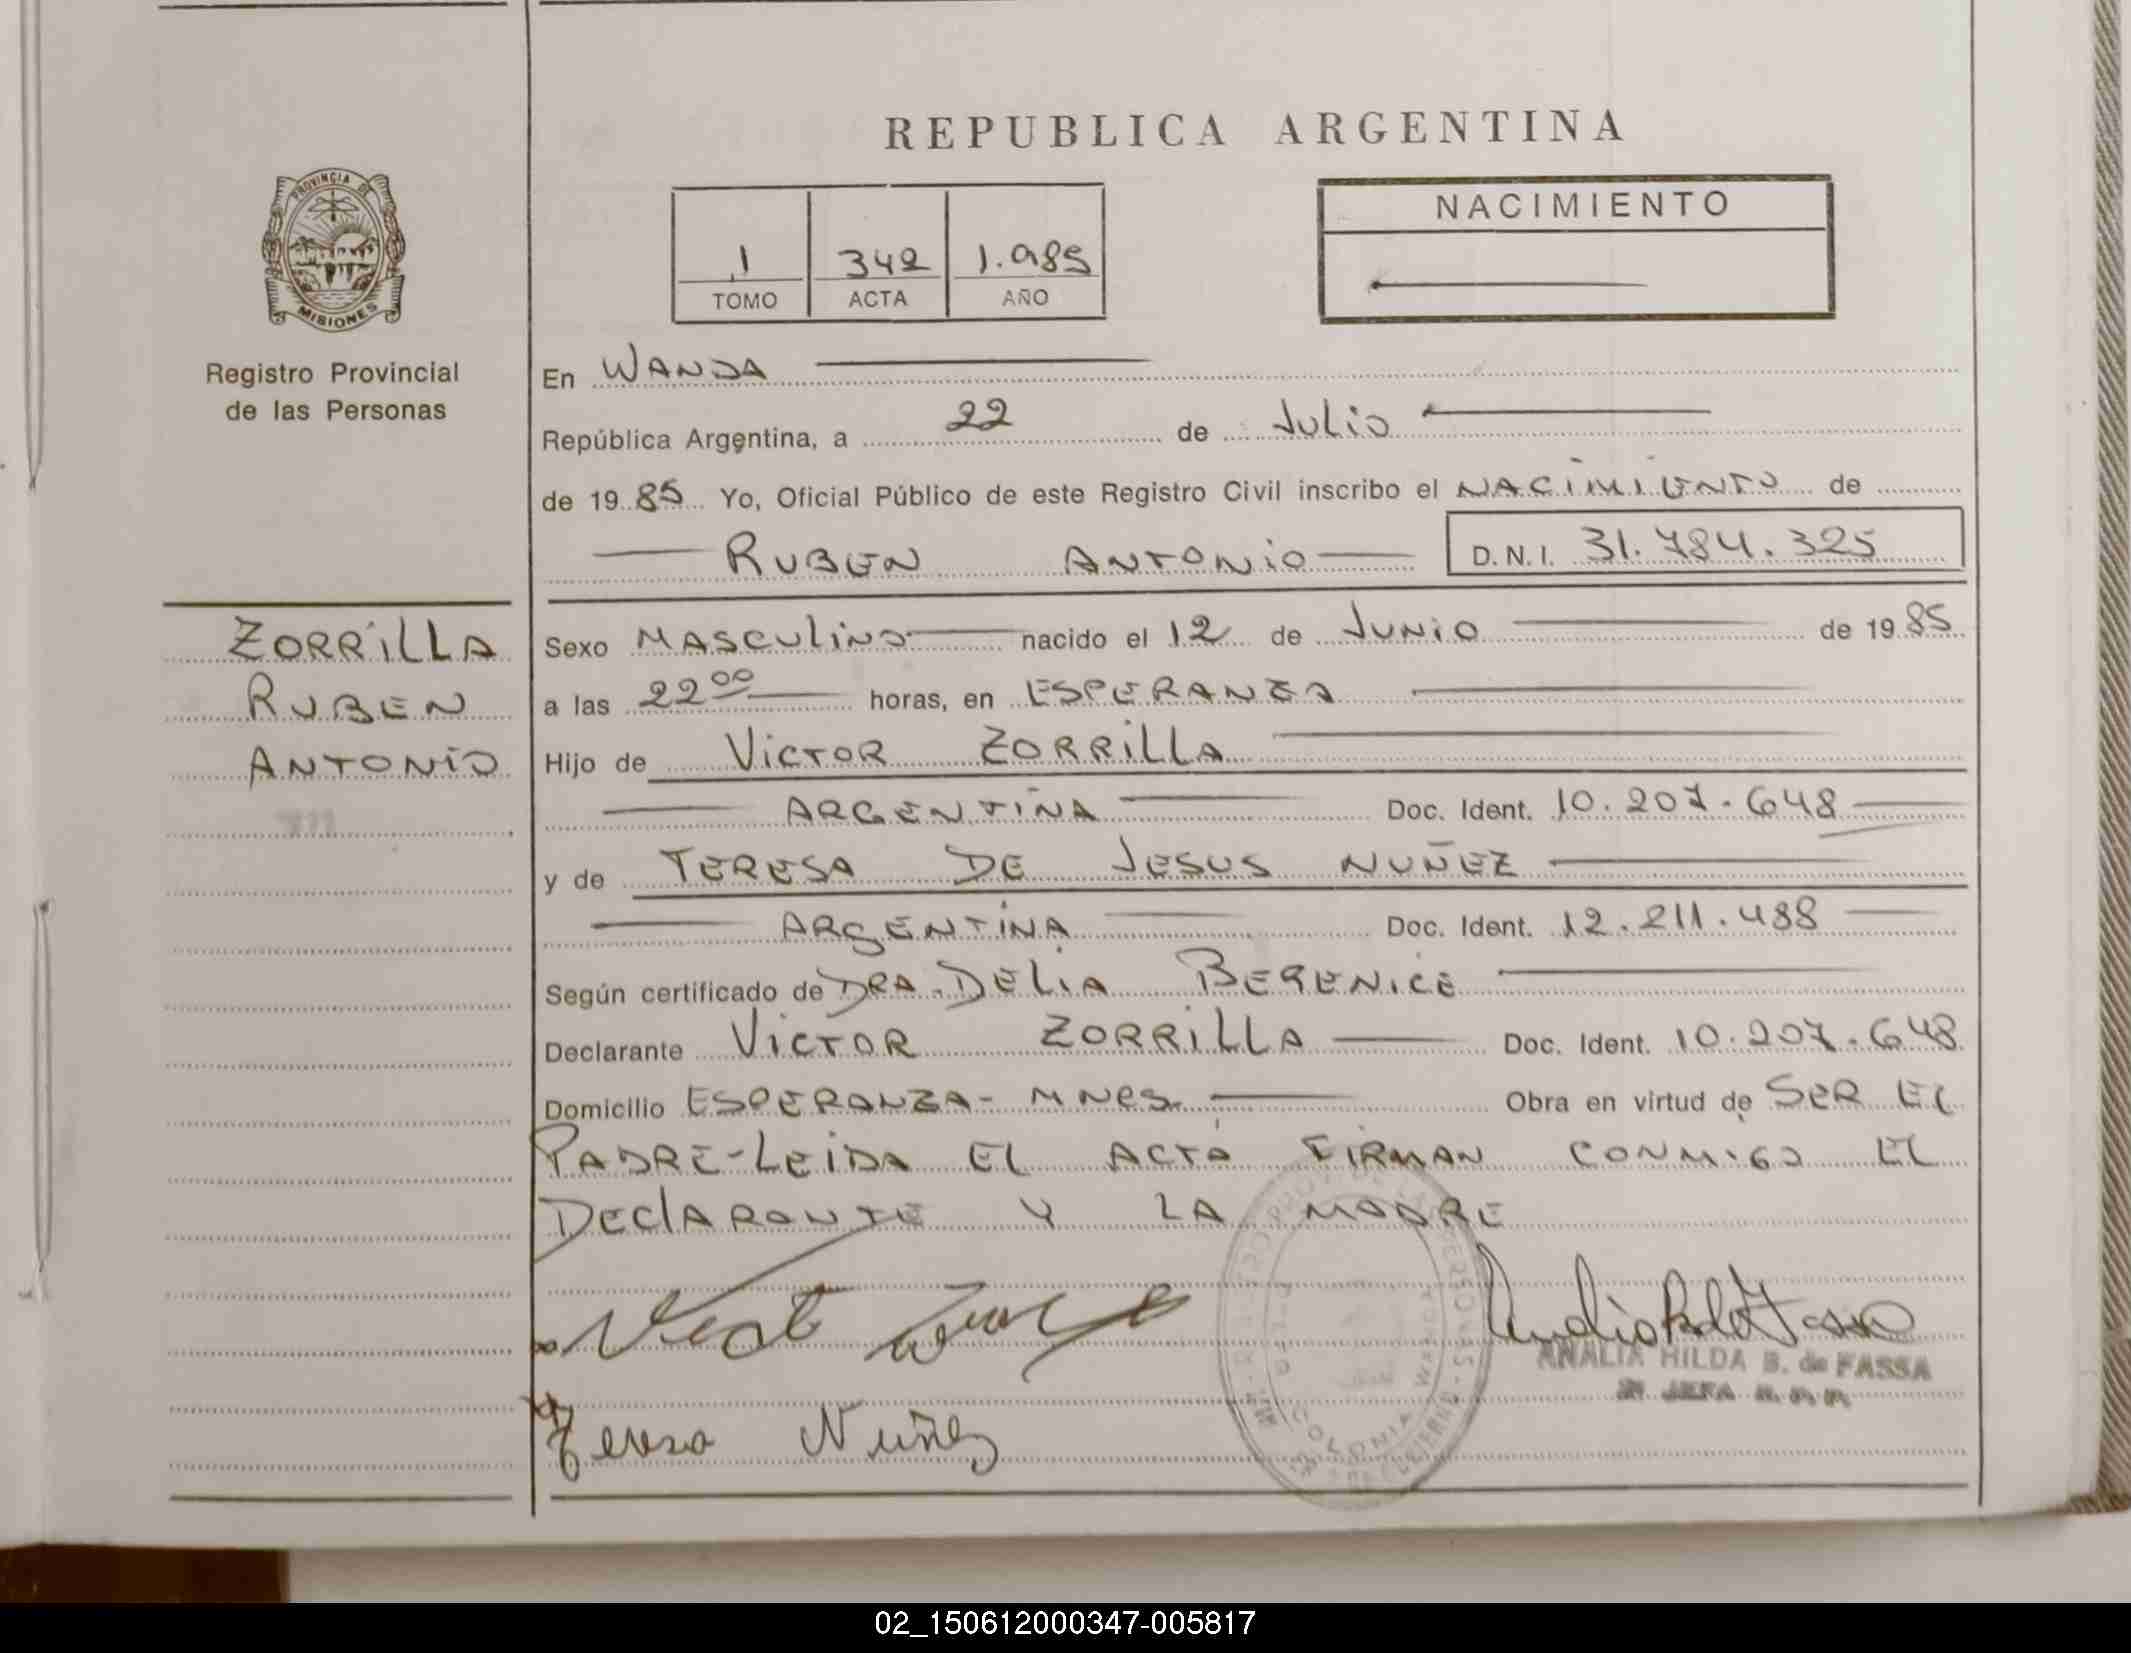 REPUBLICA ARGENTINA
PROVINCIA DE
MISIONES
Registro Provincial
de las Personas
1 342 1.985
TOMO ACTA AÑO
NACIMIENTO
En WANDA
República Argentina, a 22 de Julio
de 19 85 Yo, Oficial Público de este Registro Civil inscribo el NACIMIENTO de
RUBEN ANTONIO D.N.I. 31.784.325
ZORRILLA
RUBEN
ANTONIO
Sexo MASCULINO nacido el 12 de JUNIO de 19 85
a las 22 00 horas, en ESPERANZA
Hijo de VICTOR ZORRILLA
ARGENTINA Doc. Ident. 10.207.648
y de TERESA DE JESUS NUÑEZ
ARGENTINA Doc. Ident. 12.211.488
Según certificado de DRA. DELIA BERENICE
Declarante VICTOR ZORRILLA Doc. Ident. 10.207.648
Domicilio ESPERANZA - MNES. Obra en virtud de SER EL
PADRE - LEIDA EL ACTA FIRMAN CONMIGO EL
DECLARANTE Y LA MADRE
Teresa Nuñez
ANALIA HILDA B. de FASSA
JEFA R.P.P.
COLONIA WANDA
02_150612000347-005817